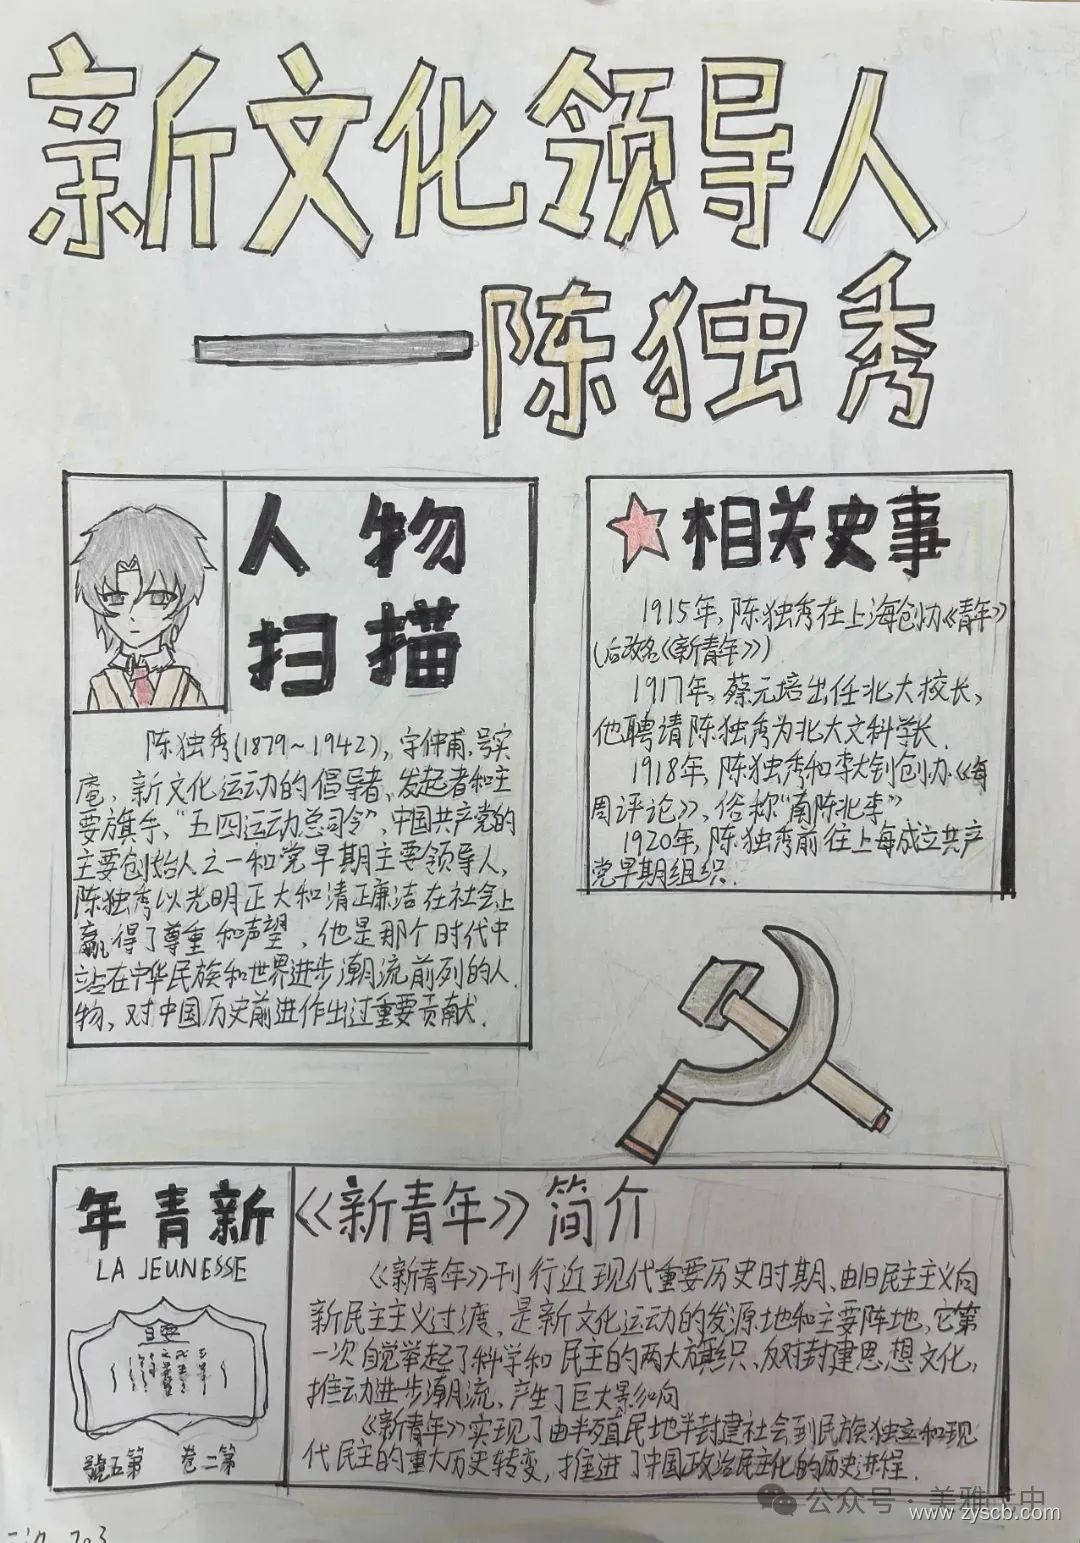 新文化领导人
——陈独秀
人物
扫描
陈独秀(1879~1942),字仲甫,号实
庵,新文化运动的倡导者、发起者和主
要旗手,"五四运动总司令",中国共产党的
主要创始人之一和党早期主要领导人,
陈独秀以光明正大和清正廉洁在社会上
赢得了尊重和声望,他是那个时代中
站在中华民族和世界进步潮流前列的人
物,对中国历史前进作出过重要贡献.
相关史事
1915年,陈独秀在上海创办《青年》
(后改名《新青年》)
1917年,蔡元培出任北大校长,
他聘请陈独秀为北大文科学长.
1918年,陈独秀和李大钊创办《每
周评论》,俗称"南陈北李"
1920年,陈独秀前往上海成立共产
党早期组织.
年青新
LA JEUNESSE
號五第 卷二第
《新青年》简介
《新青年》刊行近现代重要历史时期、由旧民主主义向
新民主主义过渡、是新文化运动的发源地和主要阵地,它第
一次自觉举起了科学和民主的两大旗帜、反对封建思想文化,
推动进步潮流、产生了巨大影响
《新青年》实现了由半殖民地半封建社会到民族独立和现
代民主的重大历史转变,推进了中国政治民主化的历史进程.
公众号·美雅
中
www.zyscb.com